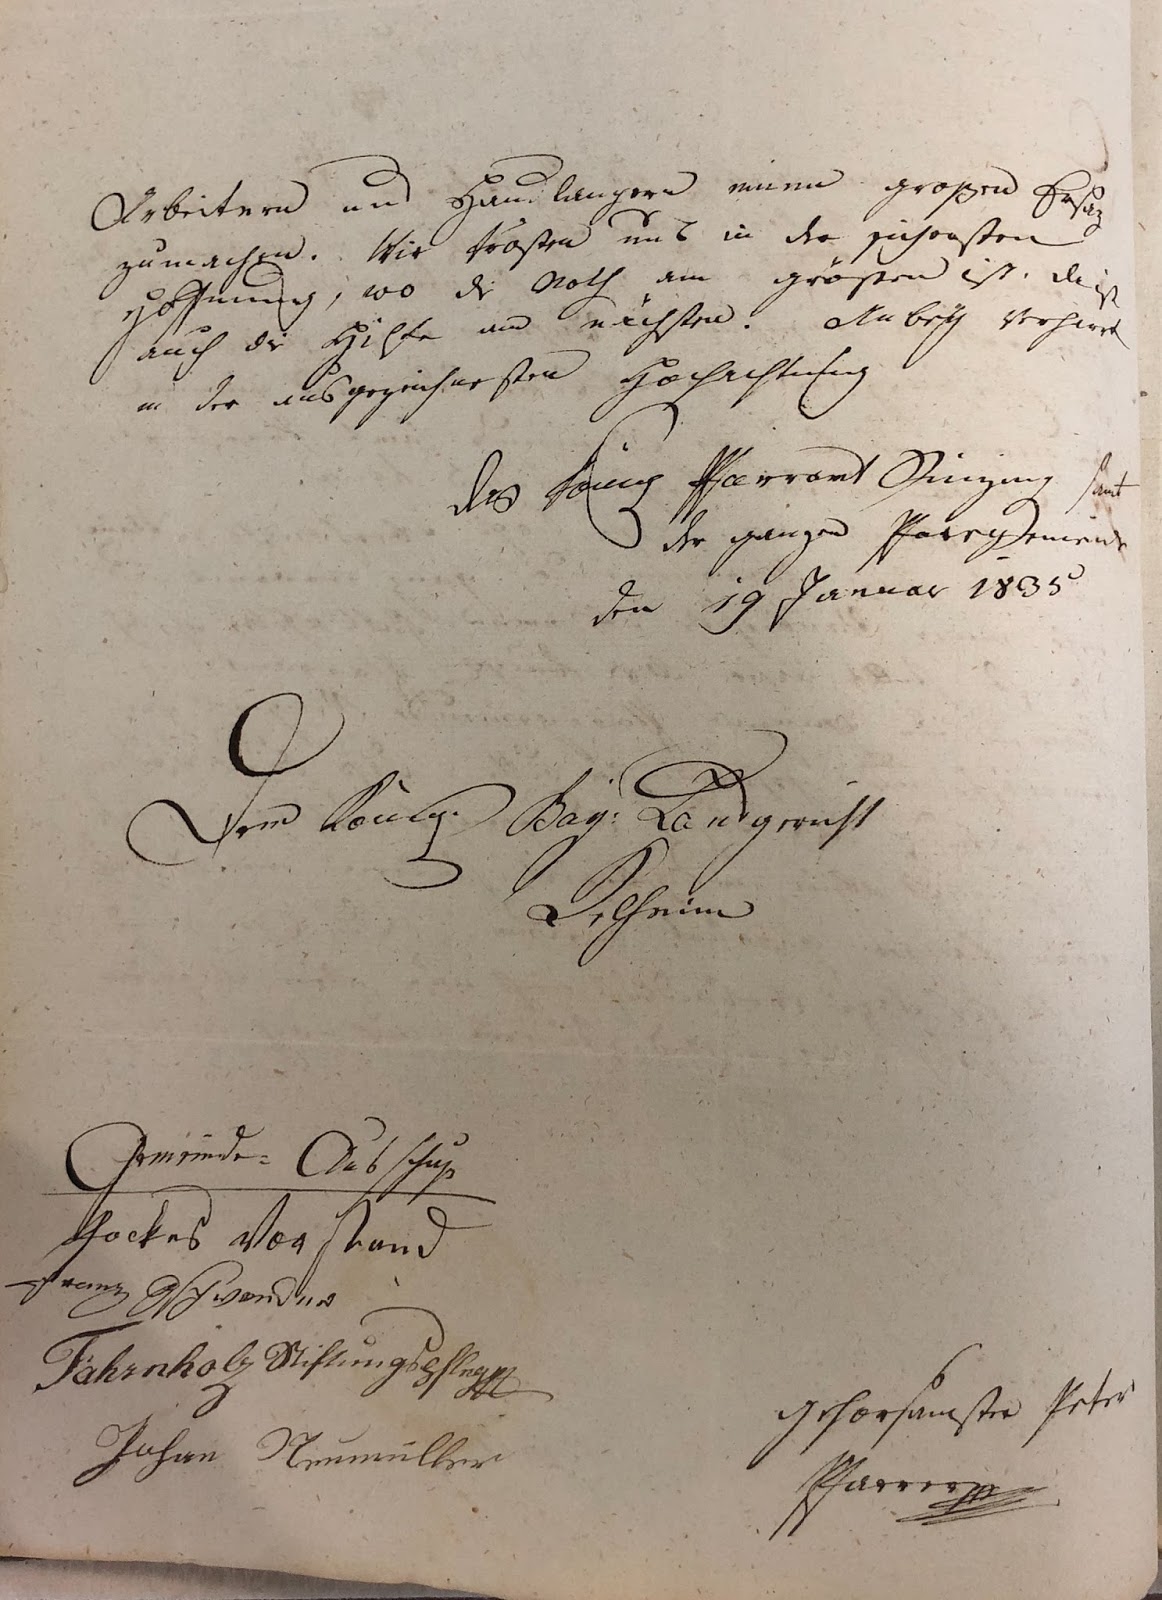 Arbeitern und Handlangern einen großen Ersaz
zumachen. Wir trösten uns in der sichersten
Hoffnung, wo die Noth am größten ist, da ist
auch die Hilfe am nächsten. Anbey verharrt
in der ausgezeichnesten Hochachtung
des König Pfarramt Sinzing samt
der ganzen Pfarrgemeinde
den 19 Januar 1835
Dem Königl. Bay: Landgericht
Kelheim
Gemeinde-Ausschuß
Vorstand
Franz
Fahrnholz Stiftungspfleger
Johan Neumüller
gehorsamster Peter
Pfarrer